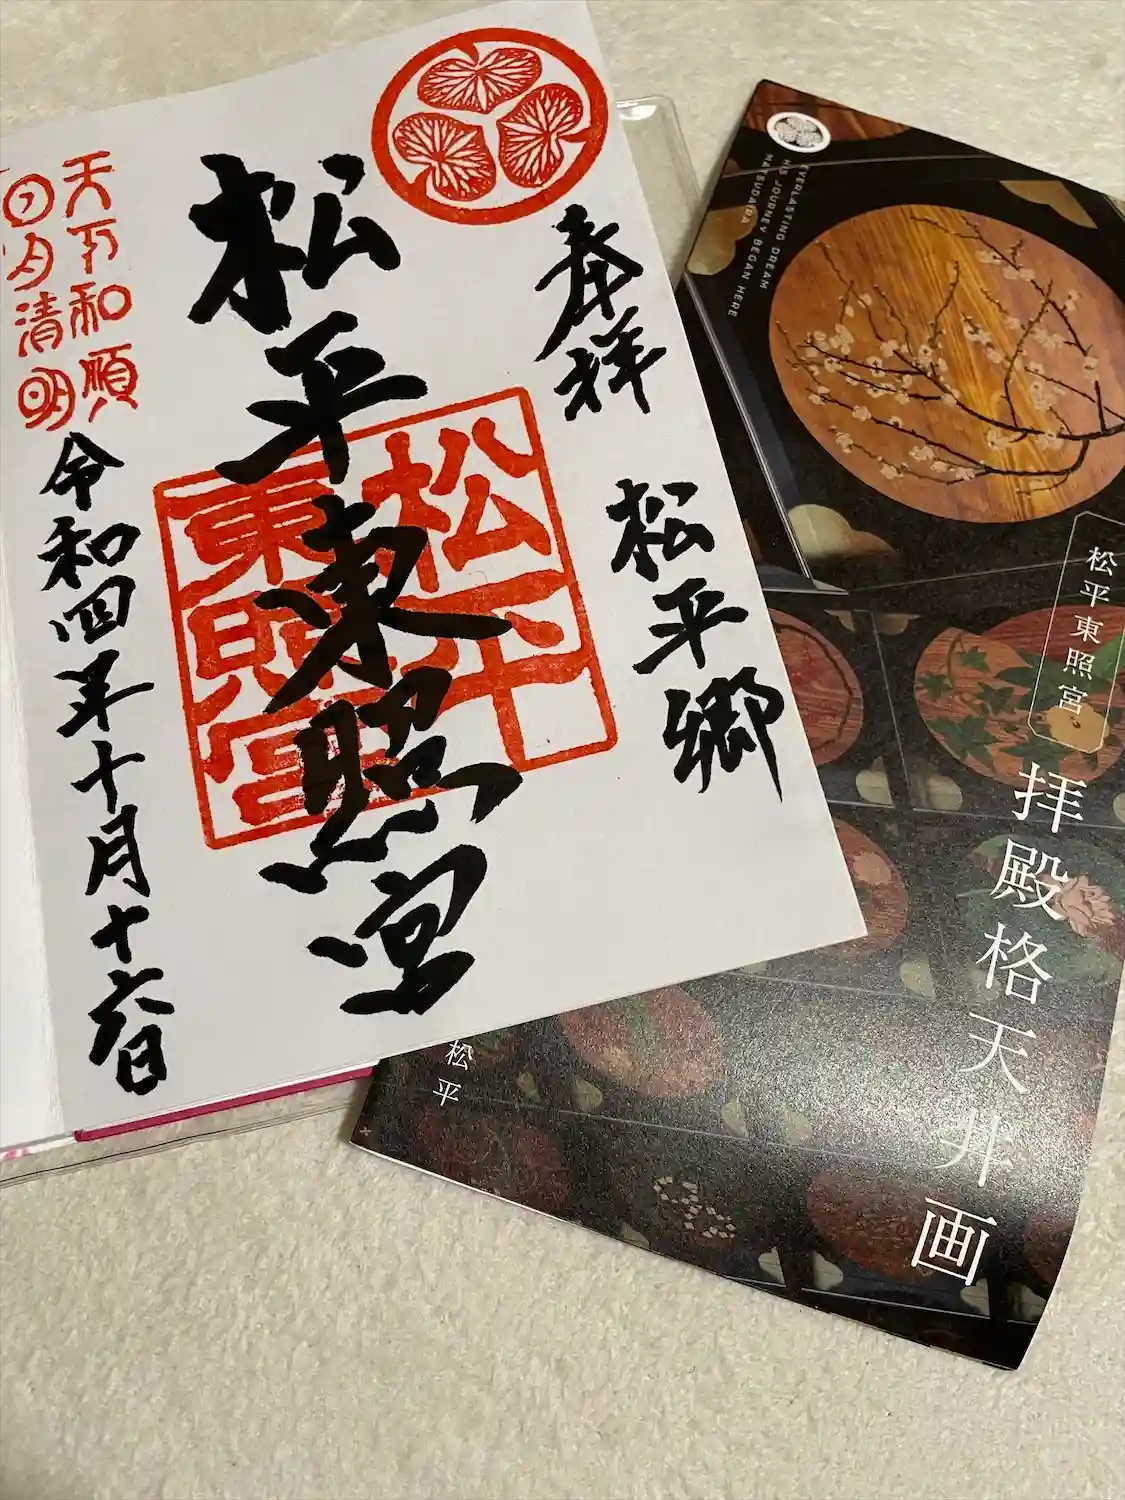 奉拝
松平郷
松平東照宮
松平
東照宮
天下和順
日月清明
令和四年十月十六日
EVERLASTING DREAM
HIS JOURNEY BEGAN HERE
MATSUDAIRA
松平東照宮
拝殿格天井画
松平